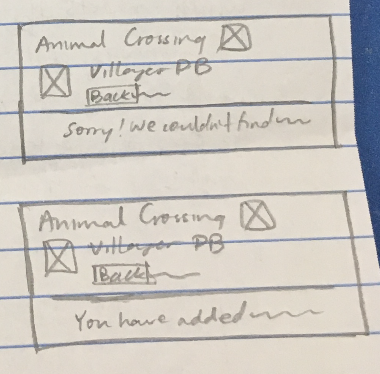 Animal Crossing
Villager DB
Back
Sorry! We couldn't find
Animal Crossing
Villager DB
Back
You have added